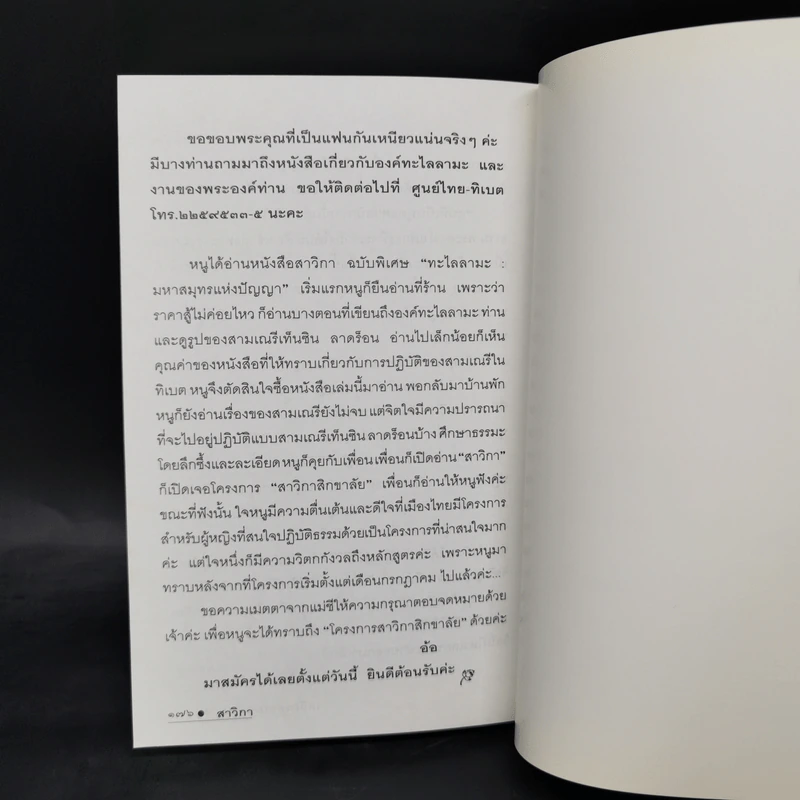 ขอขอบพระคุณที่เป็นแฟนกันเหนียวแน่นจริงๆ ค่ะ
มีบางท่านถามมาถึงหนังสือเกี่ยวกับองค์ทะไลลามะ และ
งานของพระองค์ท่าน ขอให้ติดต่อไปที่ ศูนย์ไทย-ทิเบต
โทร.๒๒๕๙๕๓๓-๕ นะคะ
หนูได้อ่านหนังสือสาวิกา ฉบับพิเศษ "ทะไลลามะ :
มหาสมุทรแห่งปัญญา" เริ่มแรกหนูก็ยืนอ่านที่ร้าน เพราะว่า
ราคาสู้ไม่ค่อยไหว ก็อ่านบางตอนที่เขียนถึงองค์ทะไลลามะ ท่าน
และดูรูปของสามเณรีเท็นซิน ลาดร็อน อ่านไปเล็กน้อยก็เห็น
คุณค่าของหนังสือที่ให้ทราบเกี่ยวกับการปฏิบัติของสามเณรีใน
ทิเบต หนูจึงตัดสินใจซื้อหนังสือเล่มนี้มาอ่าน พอกลับมาบ้านพัก
หนูก็ยังอ่านเรื่องของสามเณรียังไม่จบ แต่จิตใจมีความปรารถนา
ที่จะไปอยู่ปฏิบัติแบบสามเณรีเท็นซิน ลาดร็อนบ้าง ศึกษาธรรมะ
โดยลึกซึ้งและละเอียด หนูก็คุยกับเพื่อน เพื่อนก็เปิดอ่าน "สาวิกา"
ก็เปิดเจอโครงการ "สาวิกาสิกขาลัย" เพื่อนก็อ่านให้หนูฟังค่ะ
ขณะที่ฟังนั้น ใจหนูมีความตื่นเต้นและดีใจที่เมืองไทยมีโครงการ
สำหรับผู้หญิงที่สนใจปฏิบัติธรรมด้วยเป็นโครงการที่น่าสนใจมาก
ค่ะ แต่ใจหนึ่งก็มีความวิตกกังวลถึงหลักสูตรค่ะ เพราะหนูมา
ทราบหลังจากที่โครงการเริ่มตั้งแต่เดือนกรกฎาคม ไปแล้วค่ะ...
ขอความเมตตาจากแม่ชีให้ความกรุณาตอบจดหมายด้วย
เจ้าค่ะ เพื่อหนูจะได้ทราบถึง "โครงการสาวิกาสิกขาลัย" ด้วยค่ะ
อ้อ
มาสมัครได้เลยตั้งแต่วันนี้ ยินดีต้อนรับค่ะ
๑๗๖ ● สาวิกา